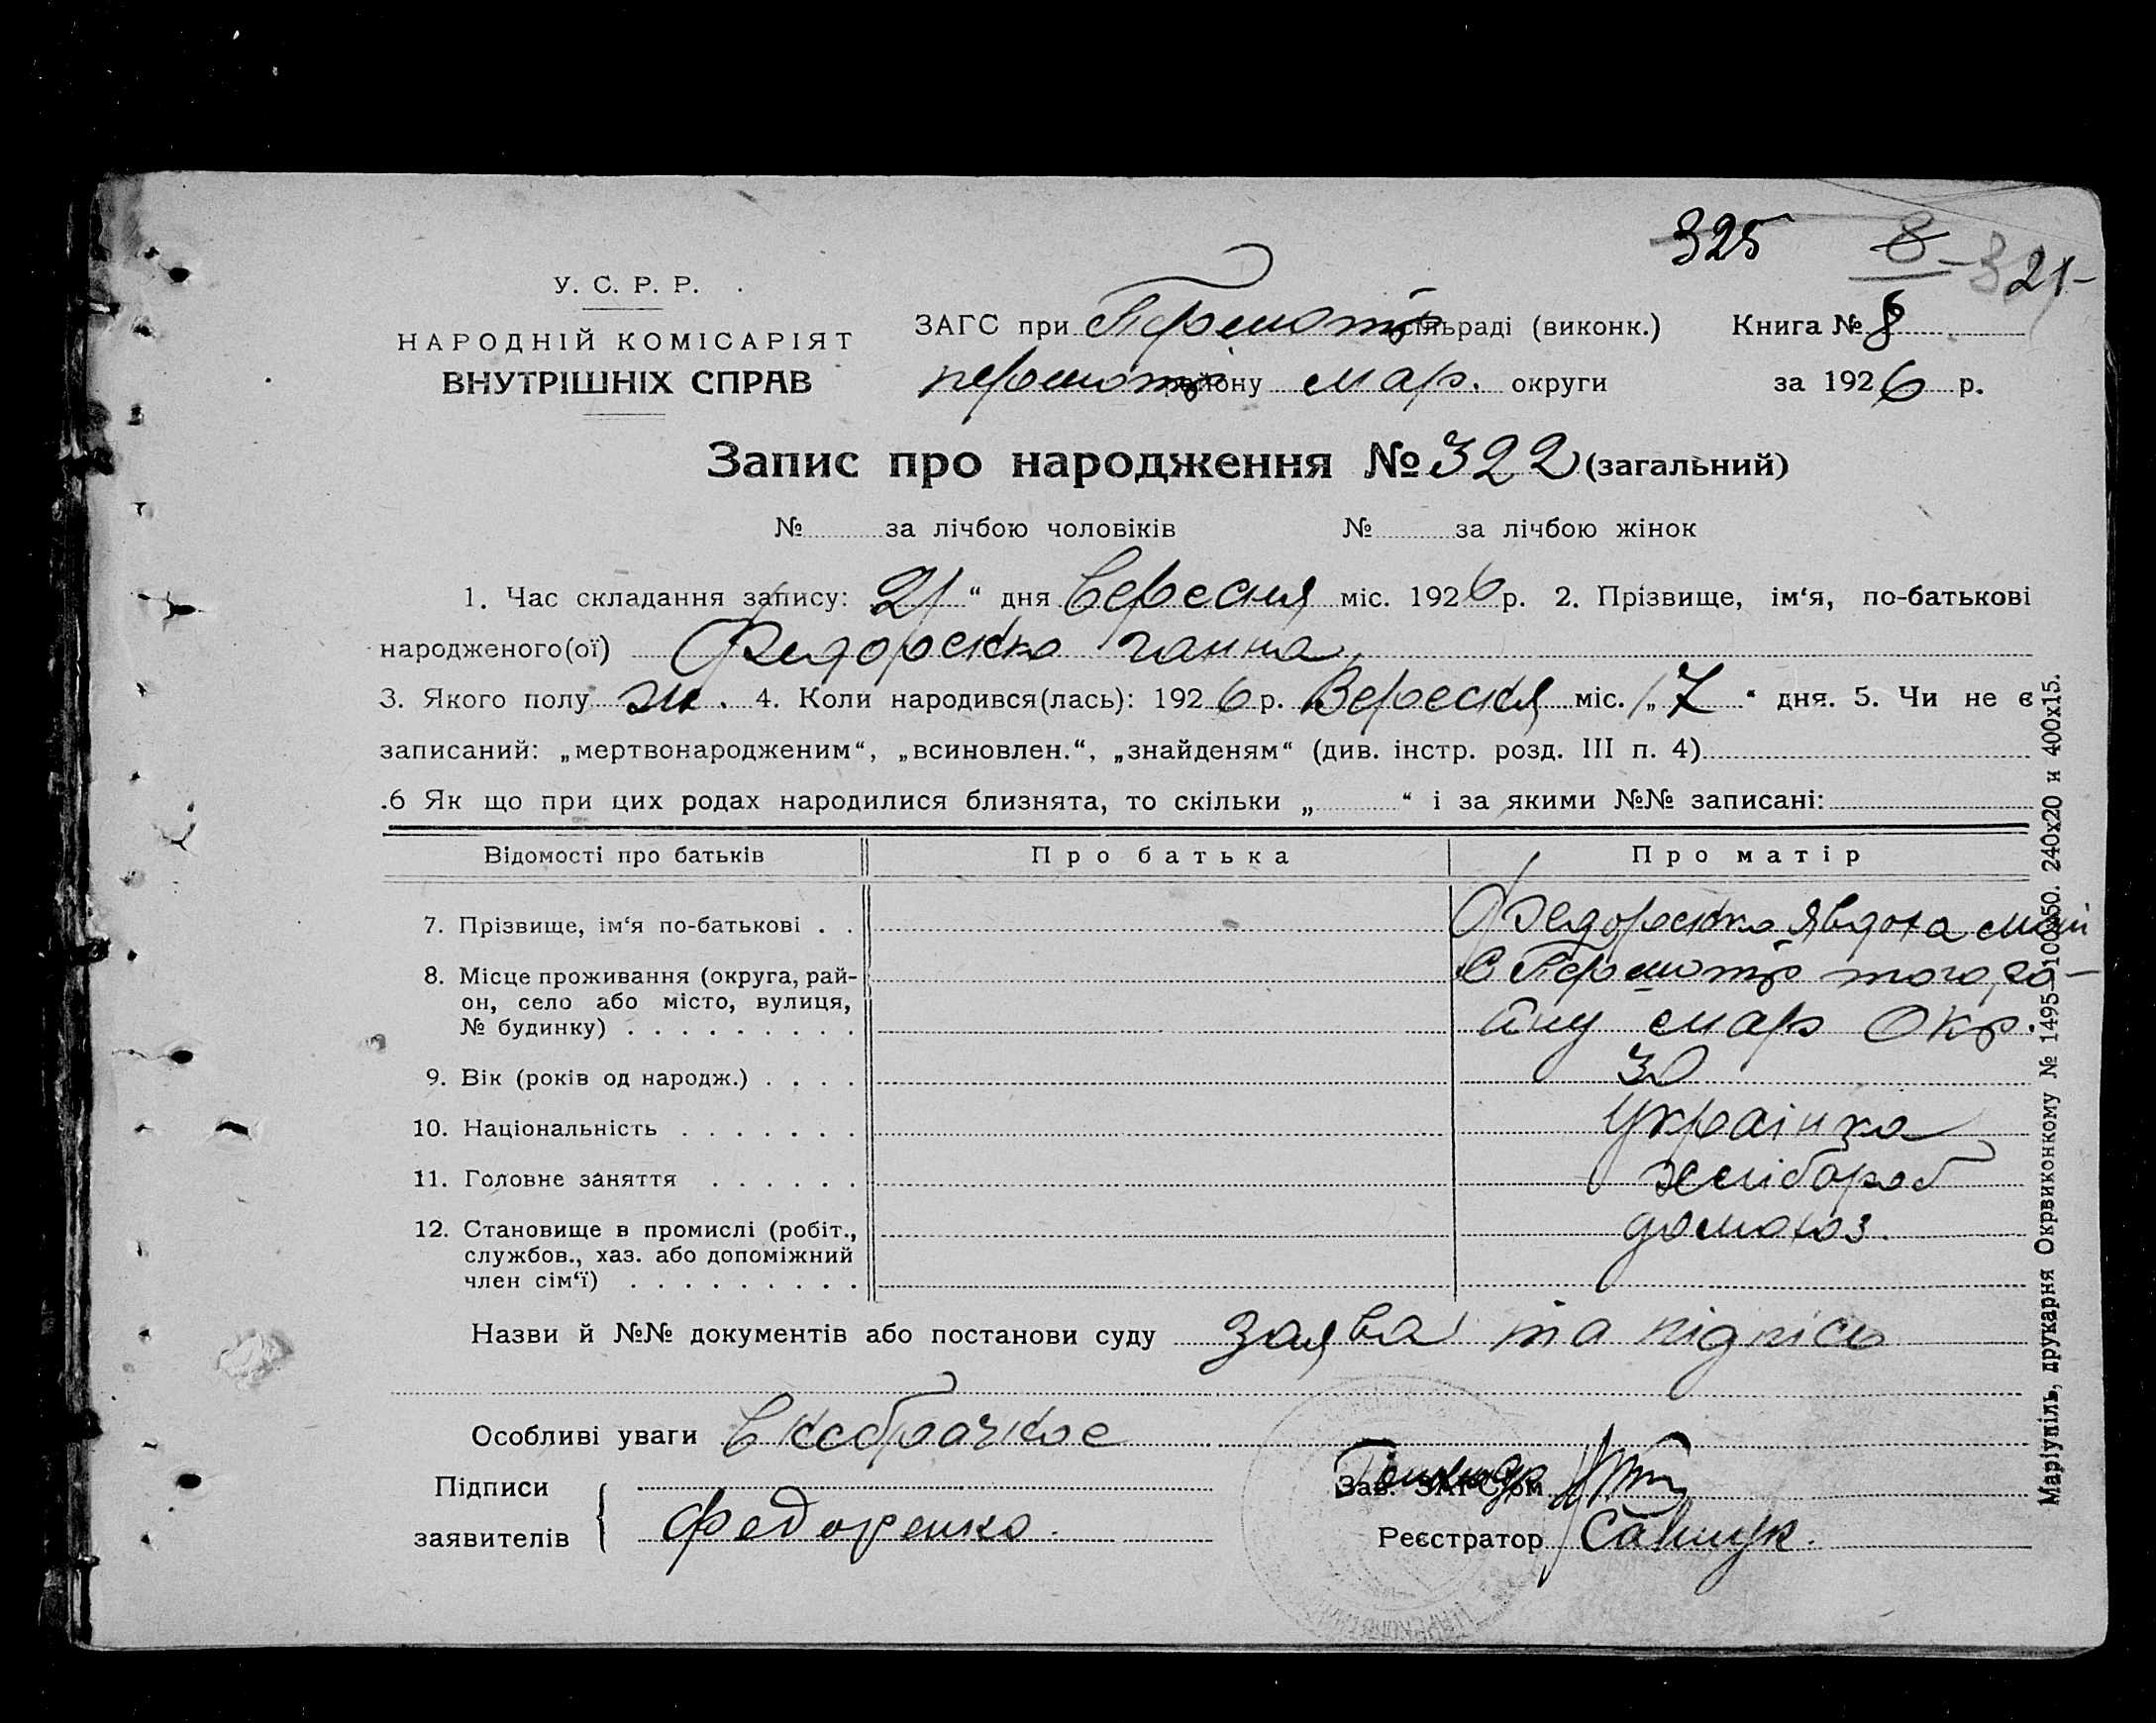 325 8 - 321 -
У. С. Р. Р.
НАРОДНІЙ КОМІСАРІЯТ
ВНУТРІШНІХ СПРАВ
ЗАГС при сільраді (виконк.) Книга № 8
району мар. округи за 1926 р.
Запис про народження № 322 (загальний)
№ за лічбою чоловіків № за лічбою жінок
1. Час складання запису: 21 “ дня Вересня міс. 1926 р. 2. Прізвище, ім‘я, по-батькові
народженого(ої) Федоренко ганна
3. Якого полу ж. 4. Коли народився(лась): 1926 р. Вересня міс. „ 7 “ дня. 5. Чи не є
записаний: „мертвонародженим“, „всиновлен.“, „знайденям“ (див. інстр. розд. III п. 4)
.6 Як що при цих родах народилися близнята, то скільки „ “ і за якими №№ записані:
Відомості про батьків Про батька Про матір
7. Прізвище, ім‘я по-батькові . . Федоренко Явдоха
8. Місце проживання (округа, рай- с того, ра-
он, село або місто, вулиця,
№ будинку) . . . . . . . . . йну мар Окр.
9. Вік (років од народж.) . . . . 30
10. Національність . . . . . . . Українка
11. Головне заняття . . . . . . хлібороб
12. Становище в промислі (робіт., домохоз.
службов., хаз. або допоміжний
член сім‘ї) . . . . . . . . .
Назви й №№ документів або постанови суду заява та підпісь
Особливі уваги Внебрачное
Підписи Зав. ЗАГС‘ом
заявителів Федоренко. Реєстратор
Маріупіль, друкарня Окрвиконкому № 1495—100х50. 240х20 и 400х15.